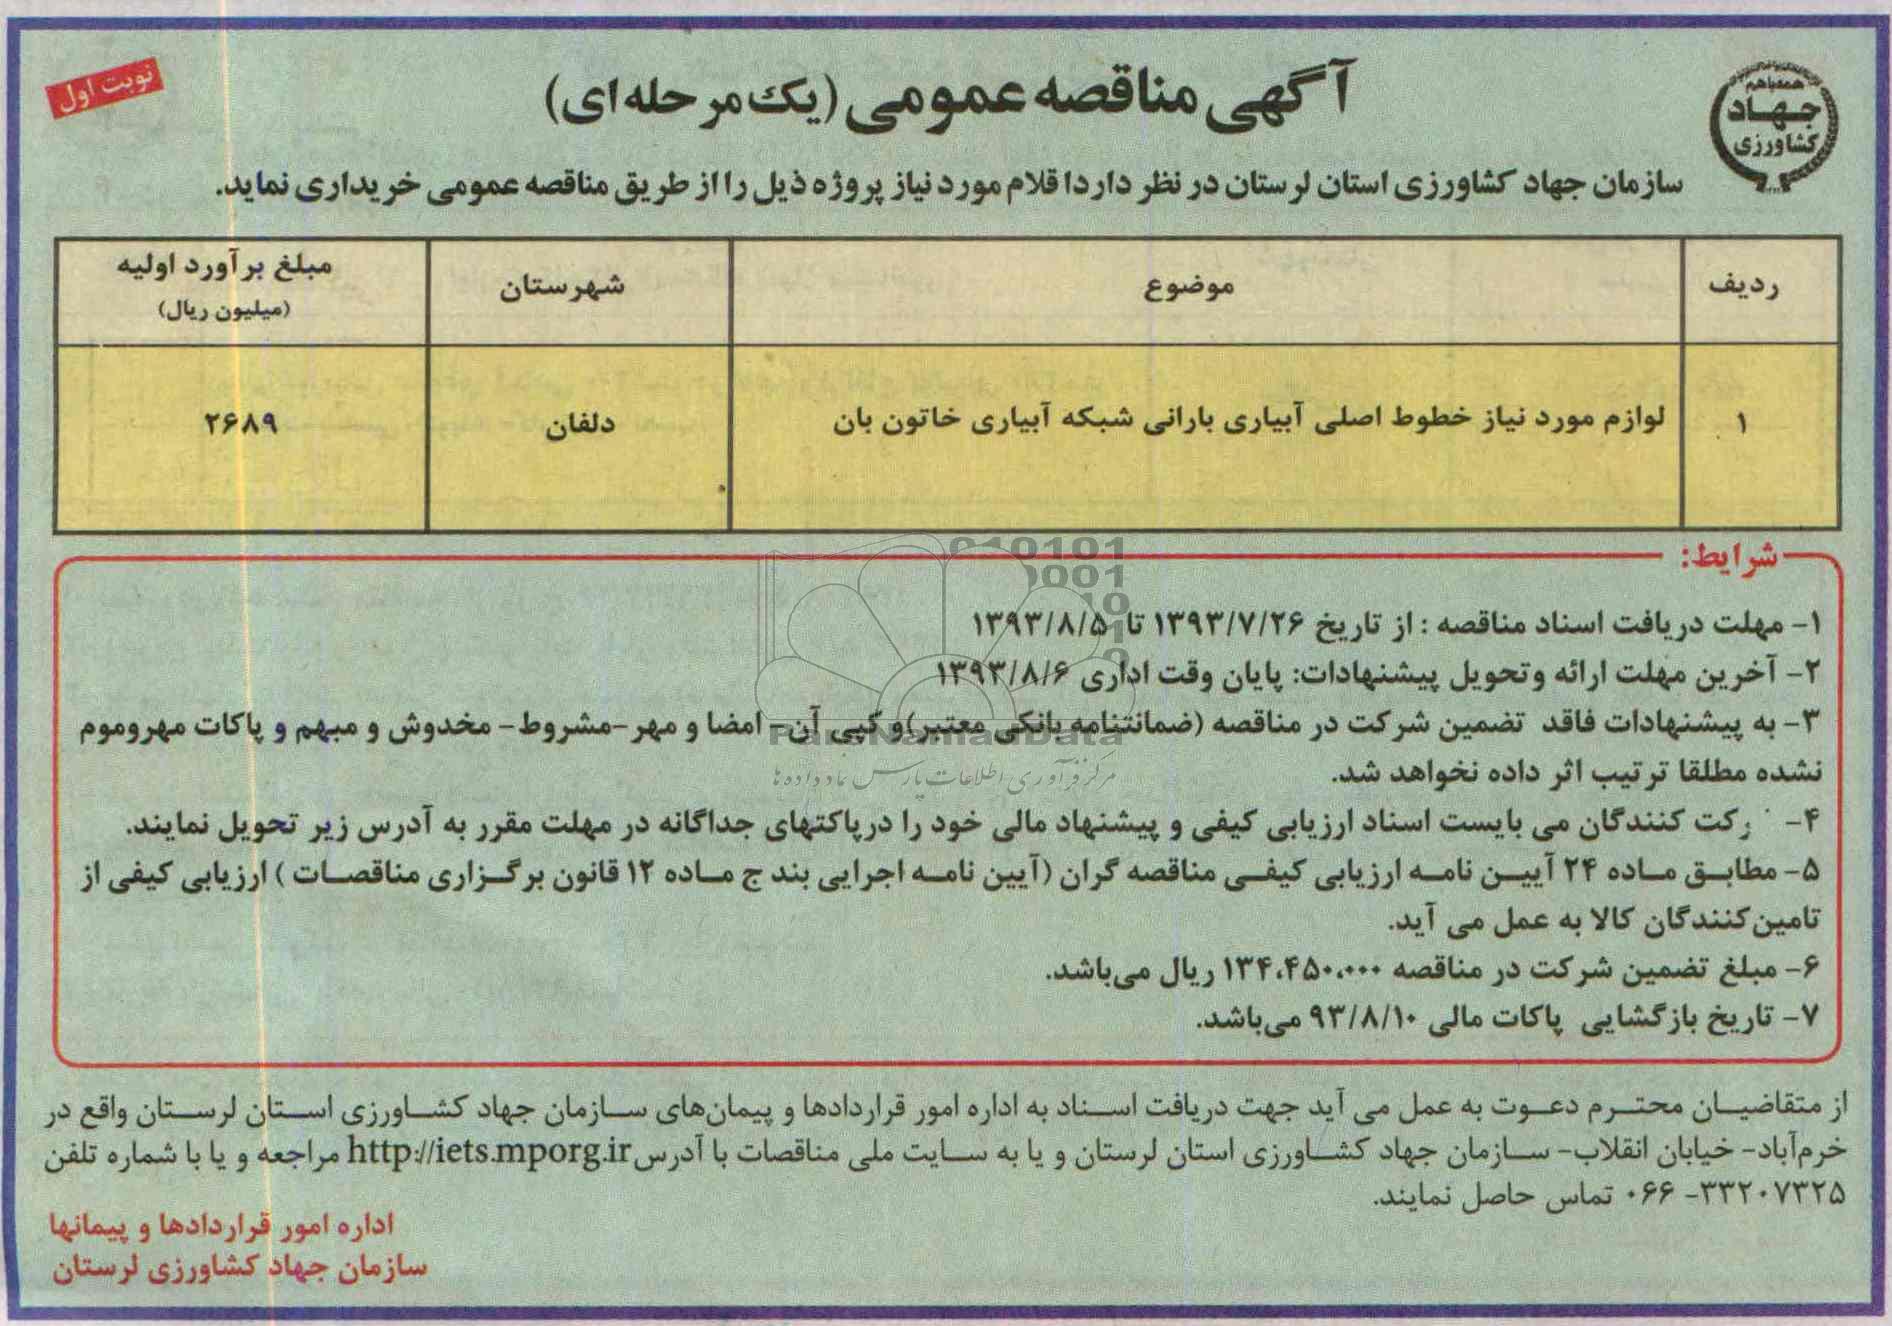 نوبت اول
آگهی مناقصه عمومی (یک مرحله ای)
همه با هم
جهاد
کشاورزی
سازمان جهاد کشاورزی استان لرستان در نظر دارد اقلام مورد نیاز پروژه ذیل را از طریق مناقصه عمومی خریداری نماید.
ردیف موضوع شهرستان مبلغ برآورد اولیه
(میلیون ریال)
۱ لوازم مورد نیاز خطوط اصلی آبیاری بارانی شبکه آبیاری خاتون بان دلفان ۲۶۸۹
شرایط:
۱- مهلت دریافت اسناد مناقصه : از تاریخ ۱۳۹۳/۷/۲۶ تا ۱۳۹۳/۸/۵
۲- آخرین مهلت ارائه وتحویل پیشنهادات: پایان وقت اداری ۱۳۹۳/۸/۶
۳- به پیشنهادات فاقد تضمین شرکت در مناقصه (ضمانتنامه بانکی معتبر)و کپی آن- امضا و مهر-مشروط- مخدوش و مبهم و پاکات مهروموم
نشده مطلقا ترتیب اثر داده نخواهد شد.
۴- رکت کنندگان می بایست اسناد ارزیابی کیفی و پیشنهاد مالی خود را درپاکتهای جداگانه در مهلت مقرر به آدرس زیر تحویل نمایند.
۵- مطابق ماده ۲۴ آیین نامه ارزیابی کیفی مناقصه گران (آیین نامه اجرایی بند ج ماده ۱۲ قانون برگزاری مناقصات ) ارزیابی کیفی از
تامین کنندگان کالا به عمل می آید.
۶- مبلغ تضمین شرکت در مناقصه ۱۳۴،۴۵۰،۰۰۰ ریال می‌باشد.
۷- تاریخ بازگشایی پاکات مالی ۹۳/۸/۱۰ می‌باشد.
ParsNamadData
مرکز فرآوری اطلاعات پارس نماد داده ها
از متقاضیان محترم دعوت به عمل می آید جهت دریافت اسناد به اداره امور قراردادها و پیمان‌های سازمان جهاد کشاورزی استان لرستان واقع در
خرم‌آباد- خیابان انقلاب- سازمان جهاد کشاورزی استان لرستان و یا به سایت ملی مناقصات با آدرس http://iets.mporg.ir مراجعه و یا با شماره تلفن
۳۳۲۰۷۳۲۵- ۰۶۶ تماس حاصل نمایند.
اداره امور قراردادها و پیمانها
سازمان جهاد کشاورزی لرستان